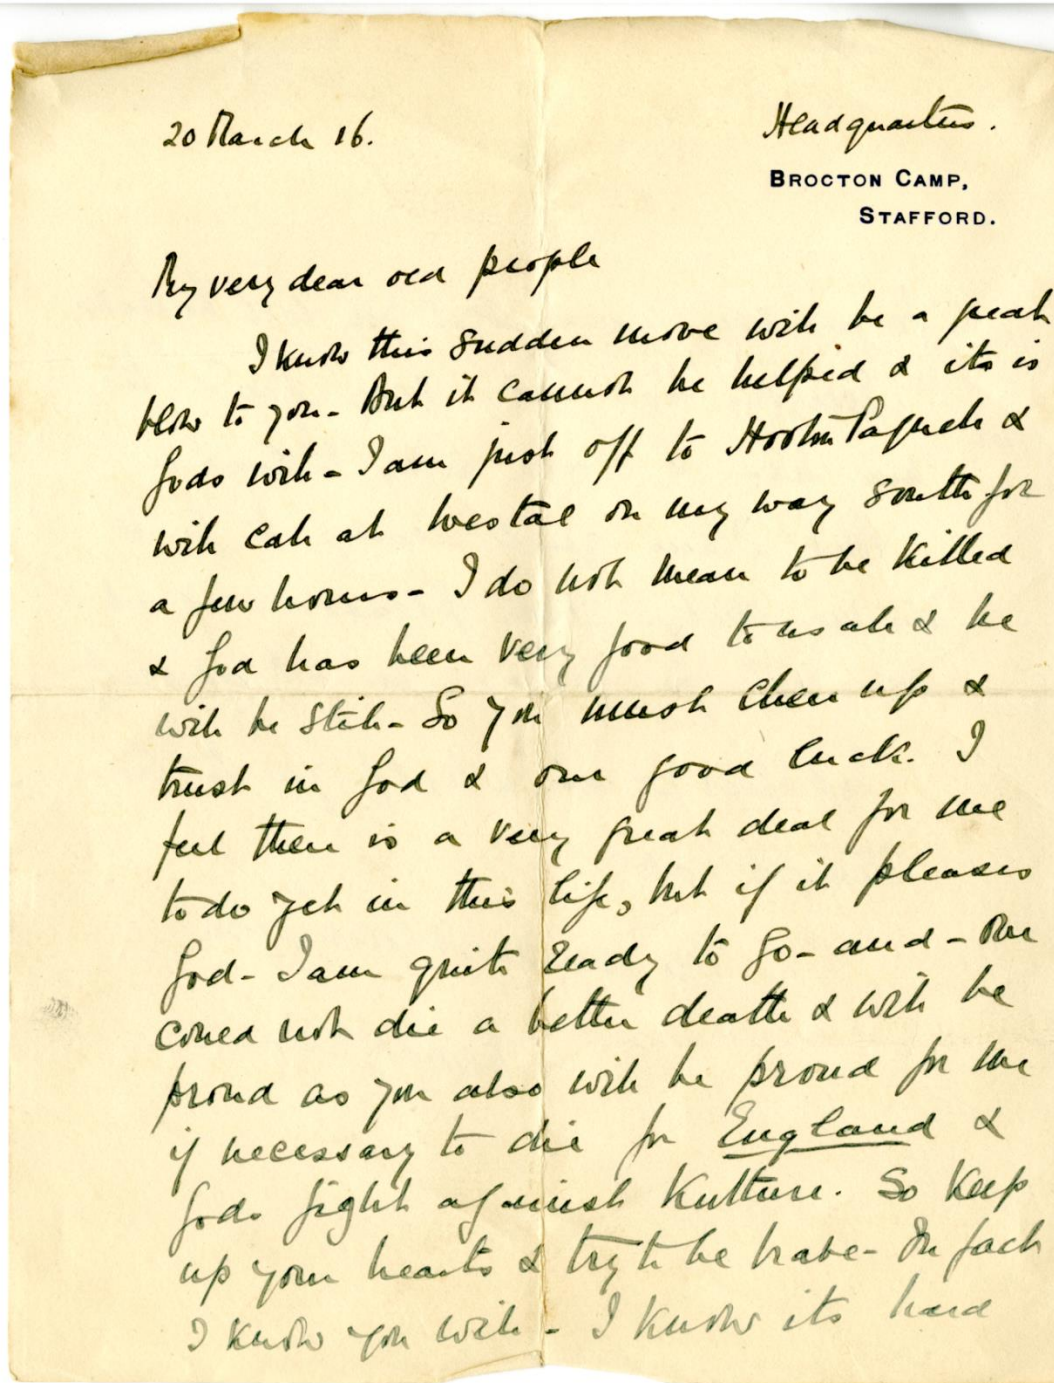 20 March 16.
Headquarters.
BROCTON CAMP,
STAFFORD.
My very dear old people
I know this sudden move will be a great
blow to you - But it cannot be helped & its is
Gods will - I am just off to Hooton Pagnell &
will call at Westal on my way south for
a few hours - I do not mean to be killed
& God has been very good to us all & he
will be still - So you must cheer up &
trust in God & our good luck. I
feel there is a very great deal for me
to do yet in this life, but if it pleases
God - I am quite ready to go - and - one
could not die a better death & will be
proud as you also will be proud for me
if necessary to die for England &
Gods fight against Kulture. So keep
up your hearts & try to be brave - In fact
I know you will - I know its hard